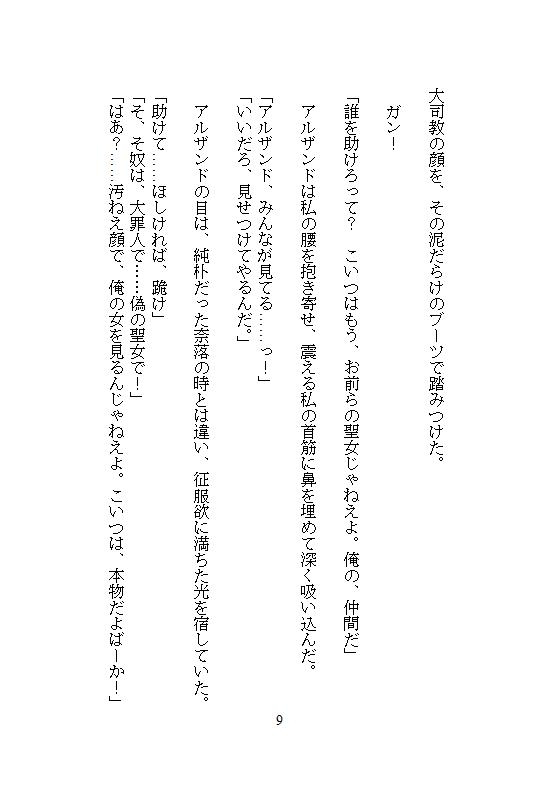 大司教の顔を、その泥だらけのブーツで踏みつけた。
ガン！
「誰を助けろって？　こいつはもう、お前らの聖女じゃねえよ。俺の、仲間だ」
アルザンドは私の腰を抱き寄せ、震える私の首筋に鼻を埋めて深く吸い込んだ。
「アルザンド、みんなが見てる……っ！」
「いいだろ、見せつけてやるんだ。」
アルザンドの目は、純朴だった奈落の時とは違い、征服欲に満ちた光を宿していた。
「助けて……ほしければ、跪け」
「そ、そ奴は、大罪人で……偽の聖女で！」
「はあ？……汚ねえ顔で、俺の女を見るんじゃねえよ。こいつは、本物だよばーか！」
9